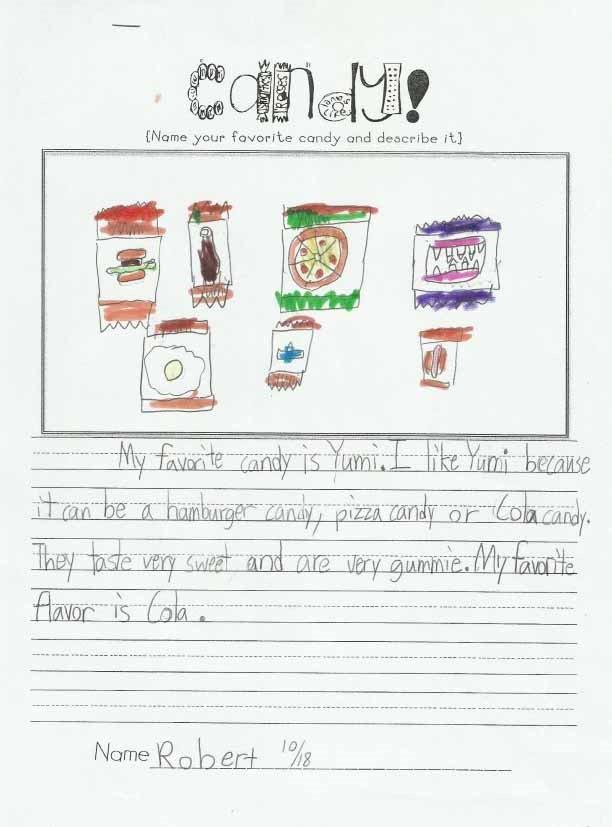 Candy!
{Name your favorite candy and describe it}
My favorite candy is Yumi. I like Yumi because
it can be a hamburger candy, pizza candy or Cola candy.
They taste very sweet and are very gummie. My favorite
flavor is Cola.
Name Robert 10/18